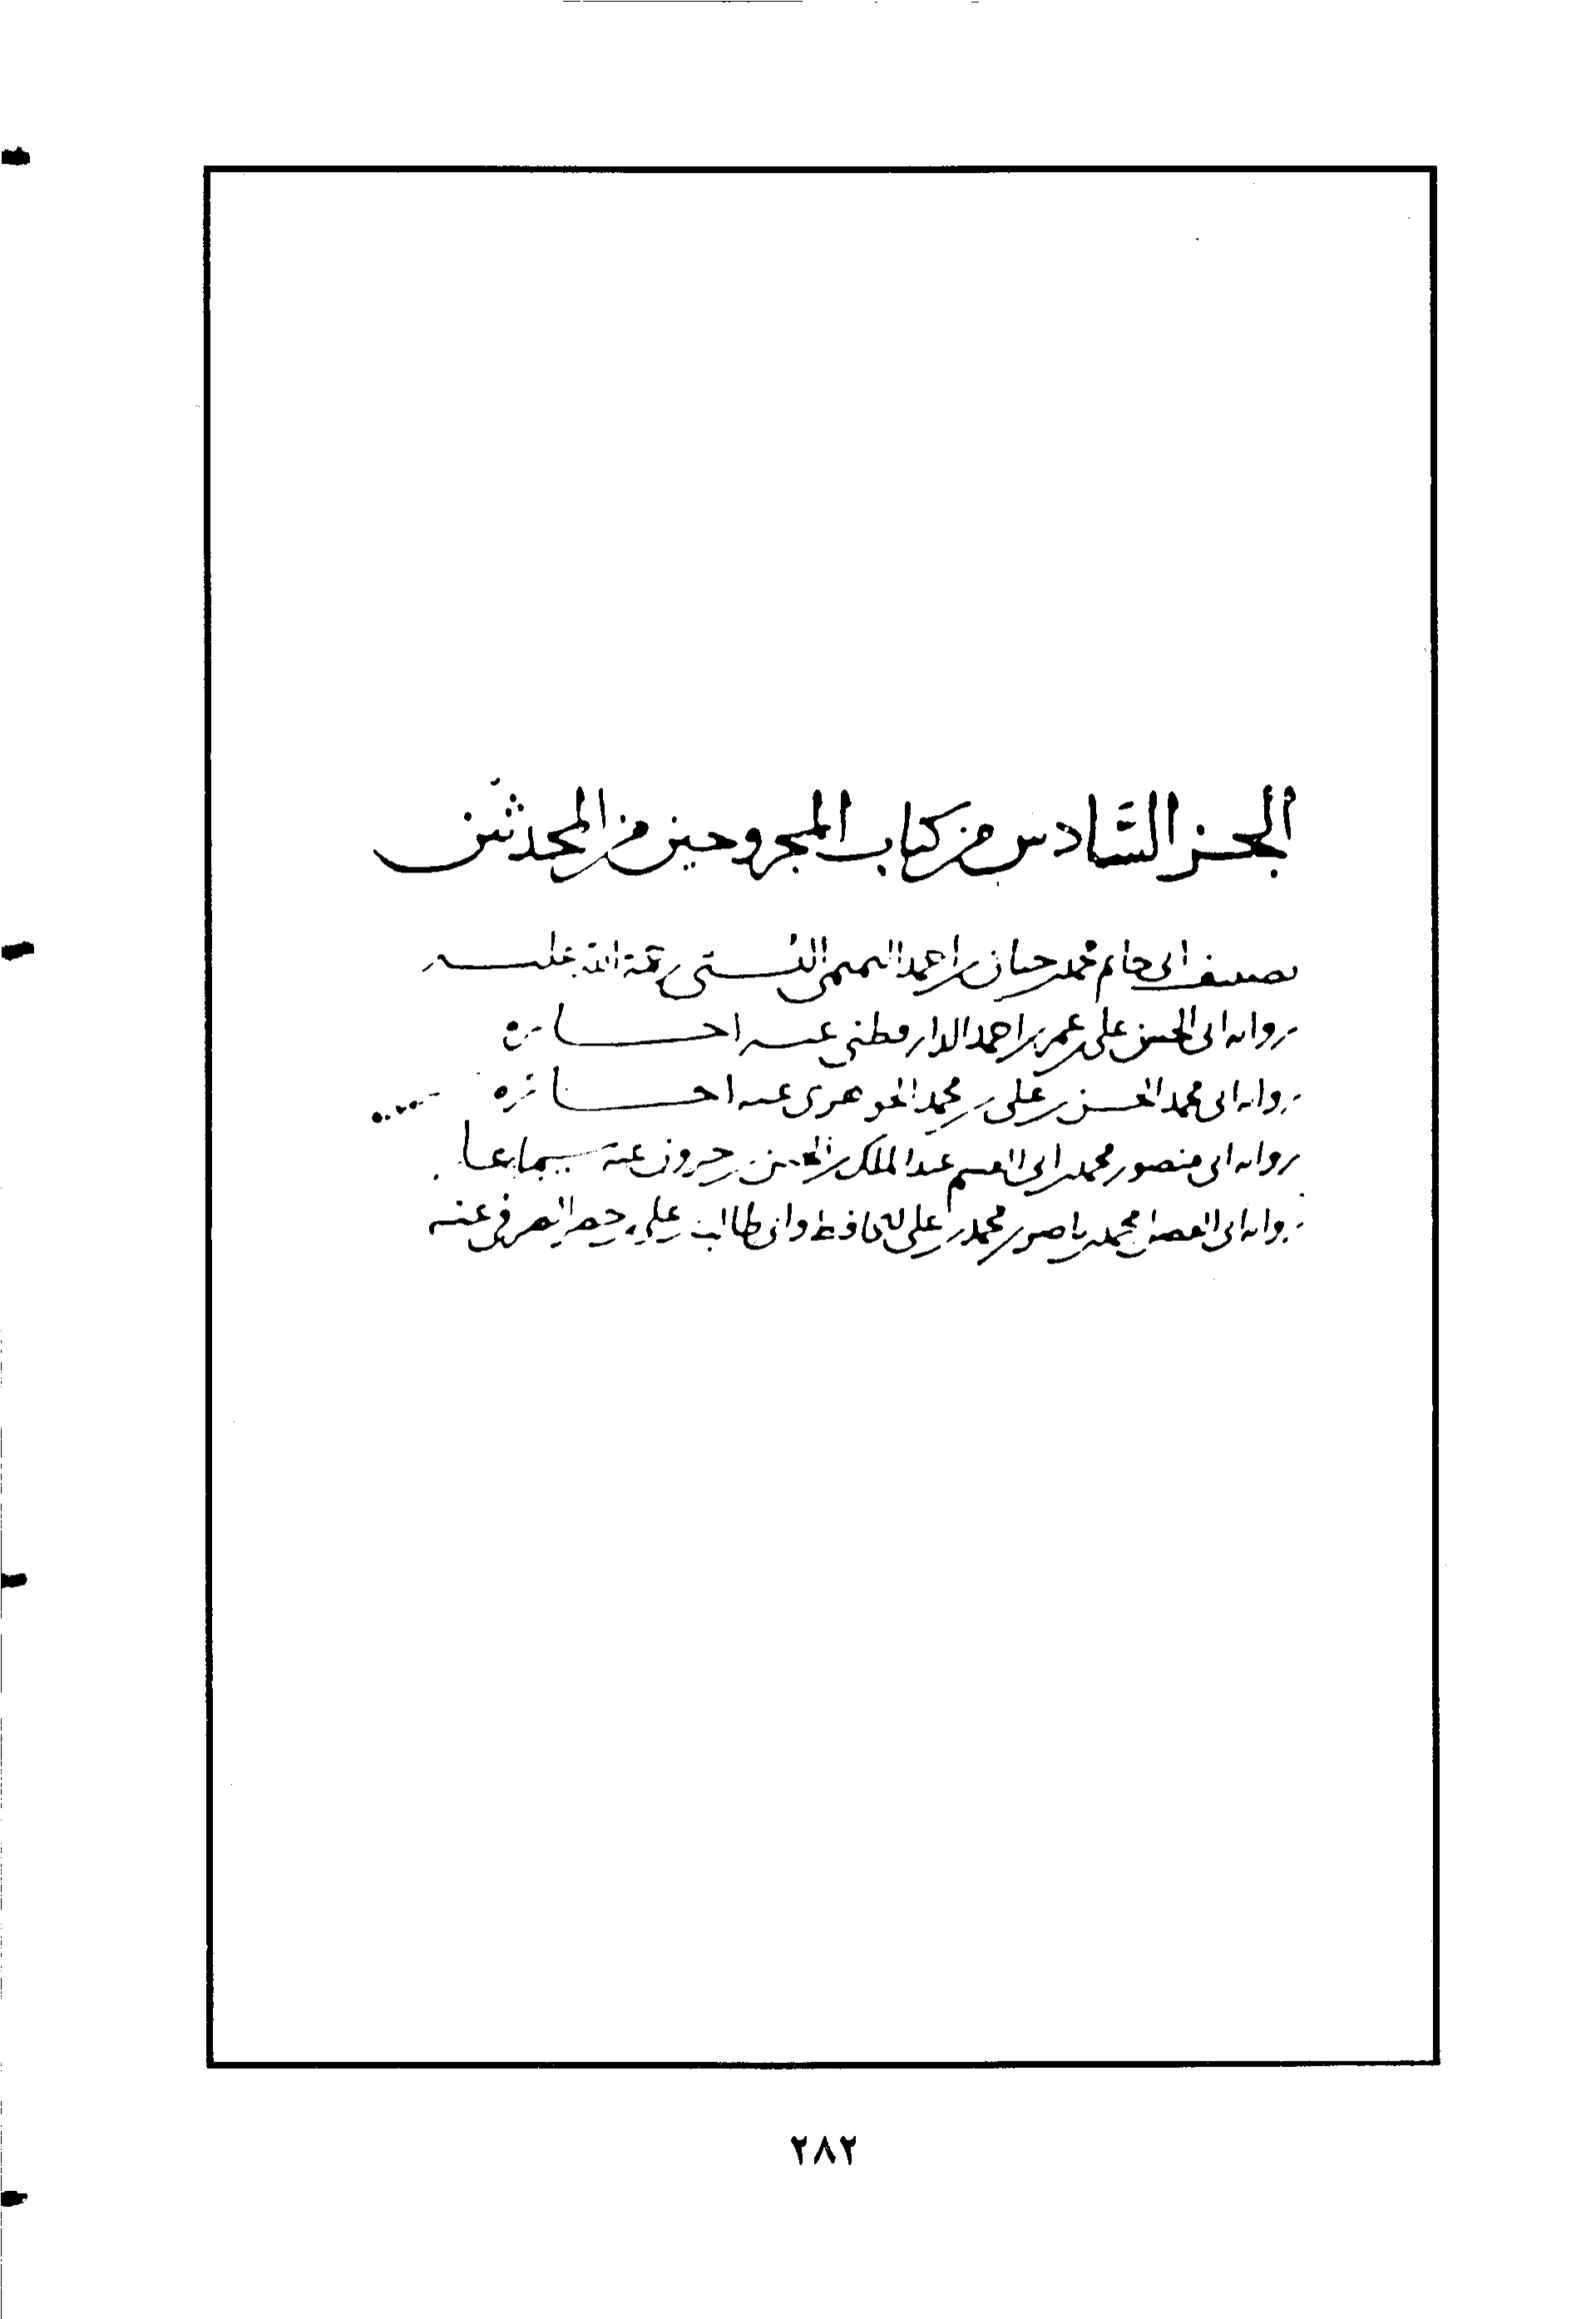 الجزء السادس من كتاب المجروحين من المحدثين
تصنيف ابى حاتم محمد بن حبان بن احمد التميمى البستى رحمة الله عليه
روايه ابى الحسن على بن عمر بن احمد الدارقطنى عنه اجازة
روايه ابى محمد الحسن بن على بن محمد الجوهرى عنه اجازة
روايه ابى منصور محمد بن عبد الملك بن الحسن بن خيرون عنه سماعا
روايه ابى الفضل محمد بن ناصر بن محمد بن على الحافظ وابى طالب على الصيرفى عنه
٢٨٢